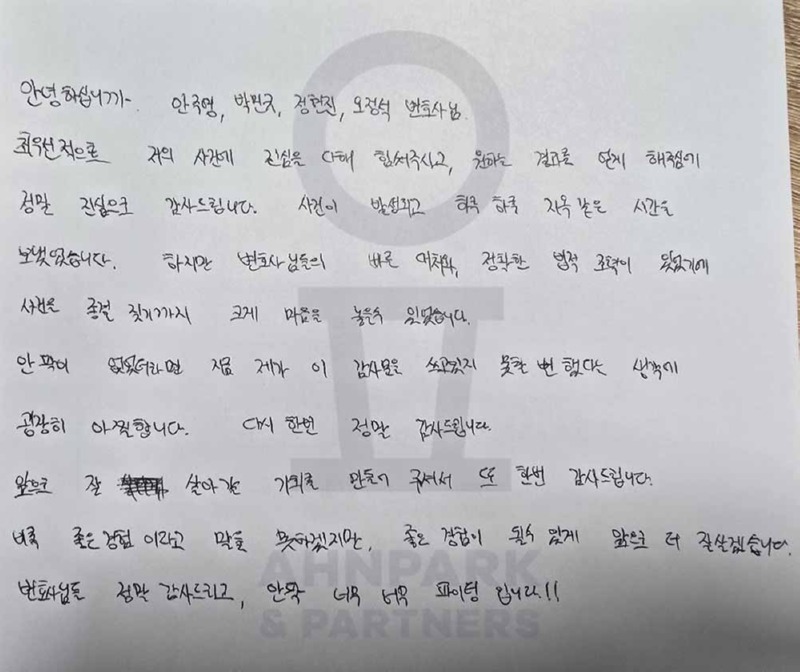 안녕하십니까. 안주영, 박민규, 정현진, 오정석 변호사님.
최우선적으로 저의 사건에 진심을 다해 힘써주시고, 원하는 결과를 얻게 해주심에
정말 진심으로 감사드립니다. 사건이 발생되고 하루 하루 지옥같은 시간을
보냈었습니다. 하지만 변호사님들의 빠른 대처와, 정확한 법적 조력이 있었기에
사건을 종결 짓기까지 크게 마음을 놓을수 있었습니다.
안팍이 없었더라면 지금 제가 이 감사문을 쓰고있지 못할 뻔 했다는 생각에
굉장히 아찔합니다. 다시 한번 정말 감사드립니다.
앞으로 잘 살아갈 기회를 만들어 주셔서 또 한번 감사드립니다.
비록 좋은경험이라고 말을 못하겠지만, 좋은 경험이 될수 있게 앞으로 더 잘살겠습니다.
변호사님들 정말 감사드리고, 안팍 너무 너무 파이팅 입니다!!
AHNPARK
& PARTNERS